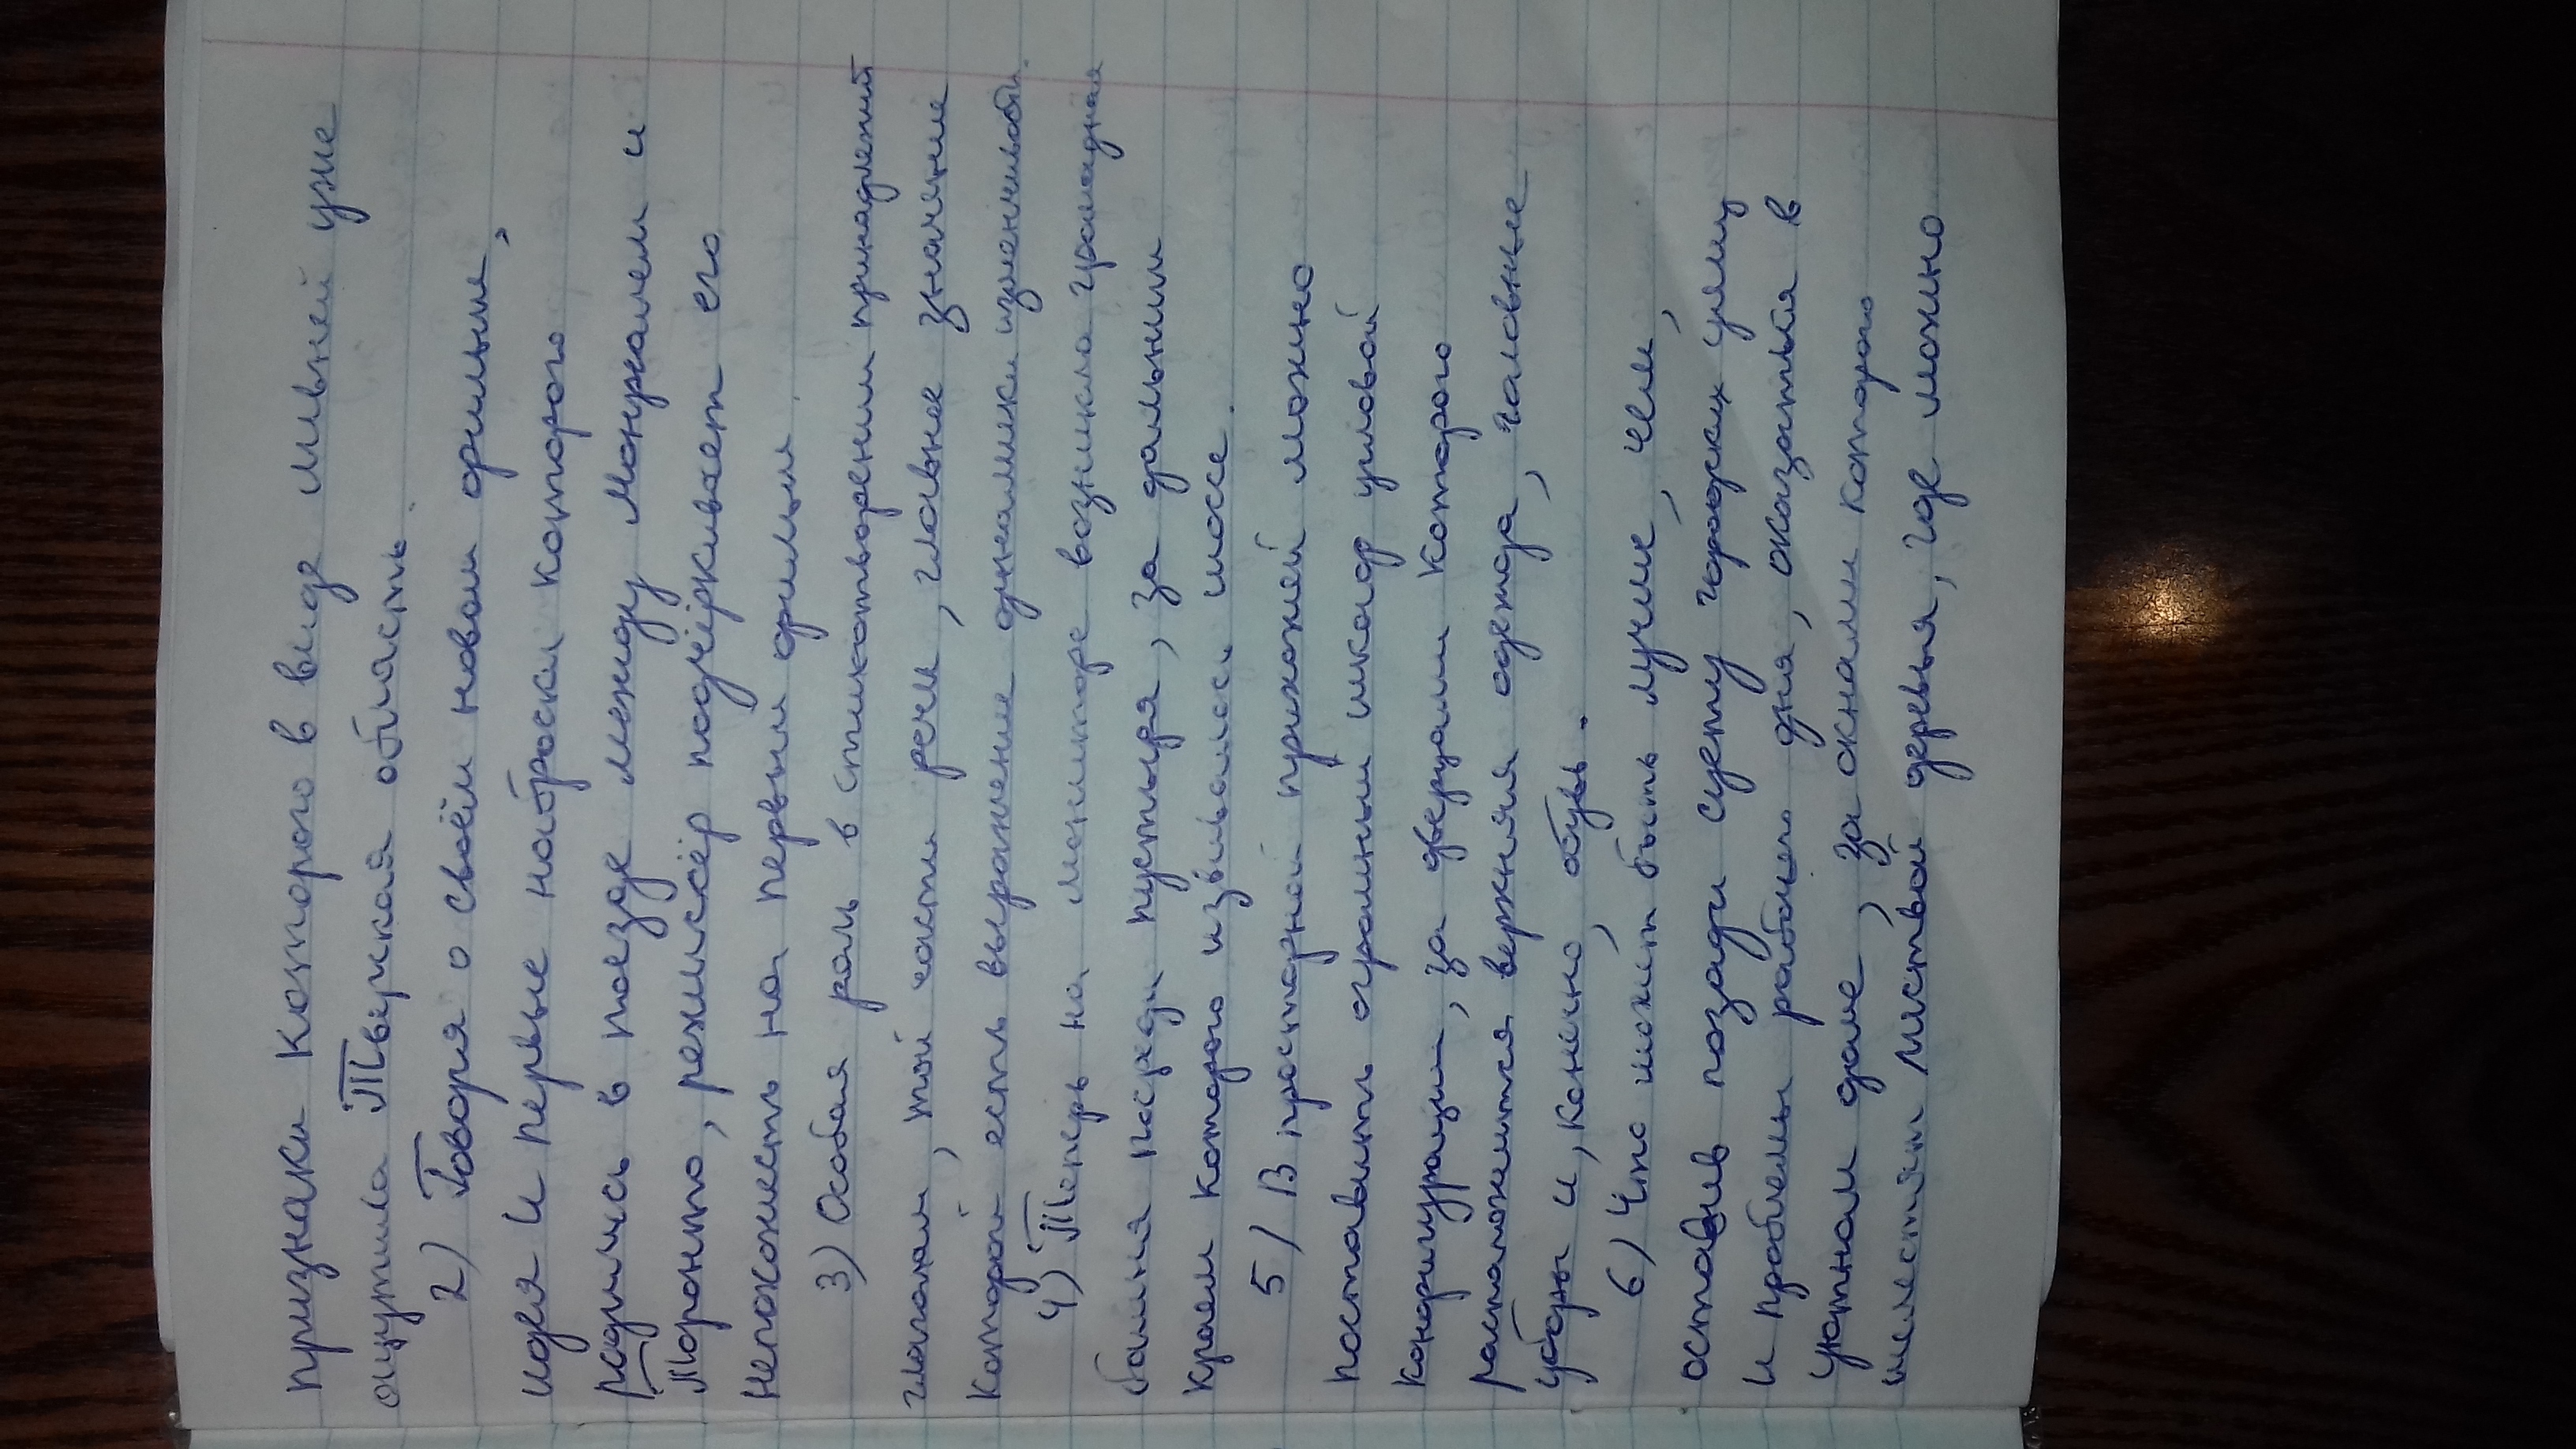 признаки которого в виде ливней уже
ощутила Тверская область.
2) Говоря о своём новом фильме,
идея и первые наброски которого
родились в поезде между Монреалем и
Торонто, режиссёр подчёркивает его
непохожесть на первый фильм.
3) Особая роль в стихотворении принадлежит
глаголам, той части речи, главное значение
которой есть выражение динамики изменчивости.
4) Теперь на мониторе возникла громадная
башня посреди пустыря, за дальним
краем которого извивалось шоссе.
5) В просторной прихожей можно
поставить огромный шкаф угловой
конфигурации, за дверцами которого
расположится верхняя одежда, головные
уборы и, конечно, обувь.
6) Что может быть лучше, чем,
оставив позади суету городских улиц
и проблемы рабочего дня, оказаться в
уютном доме, за окнами которого
шелестят листвой деревья, где можно